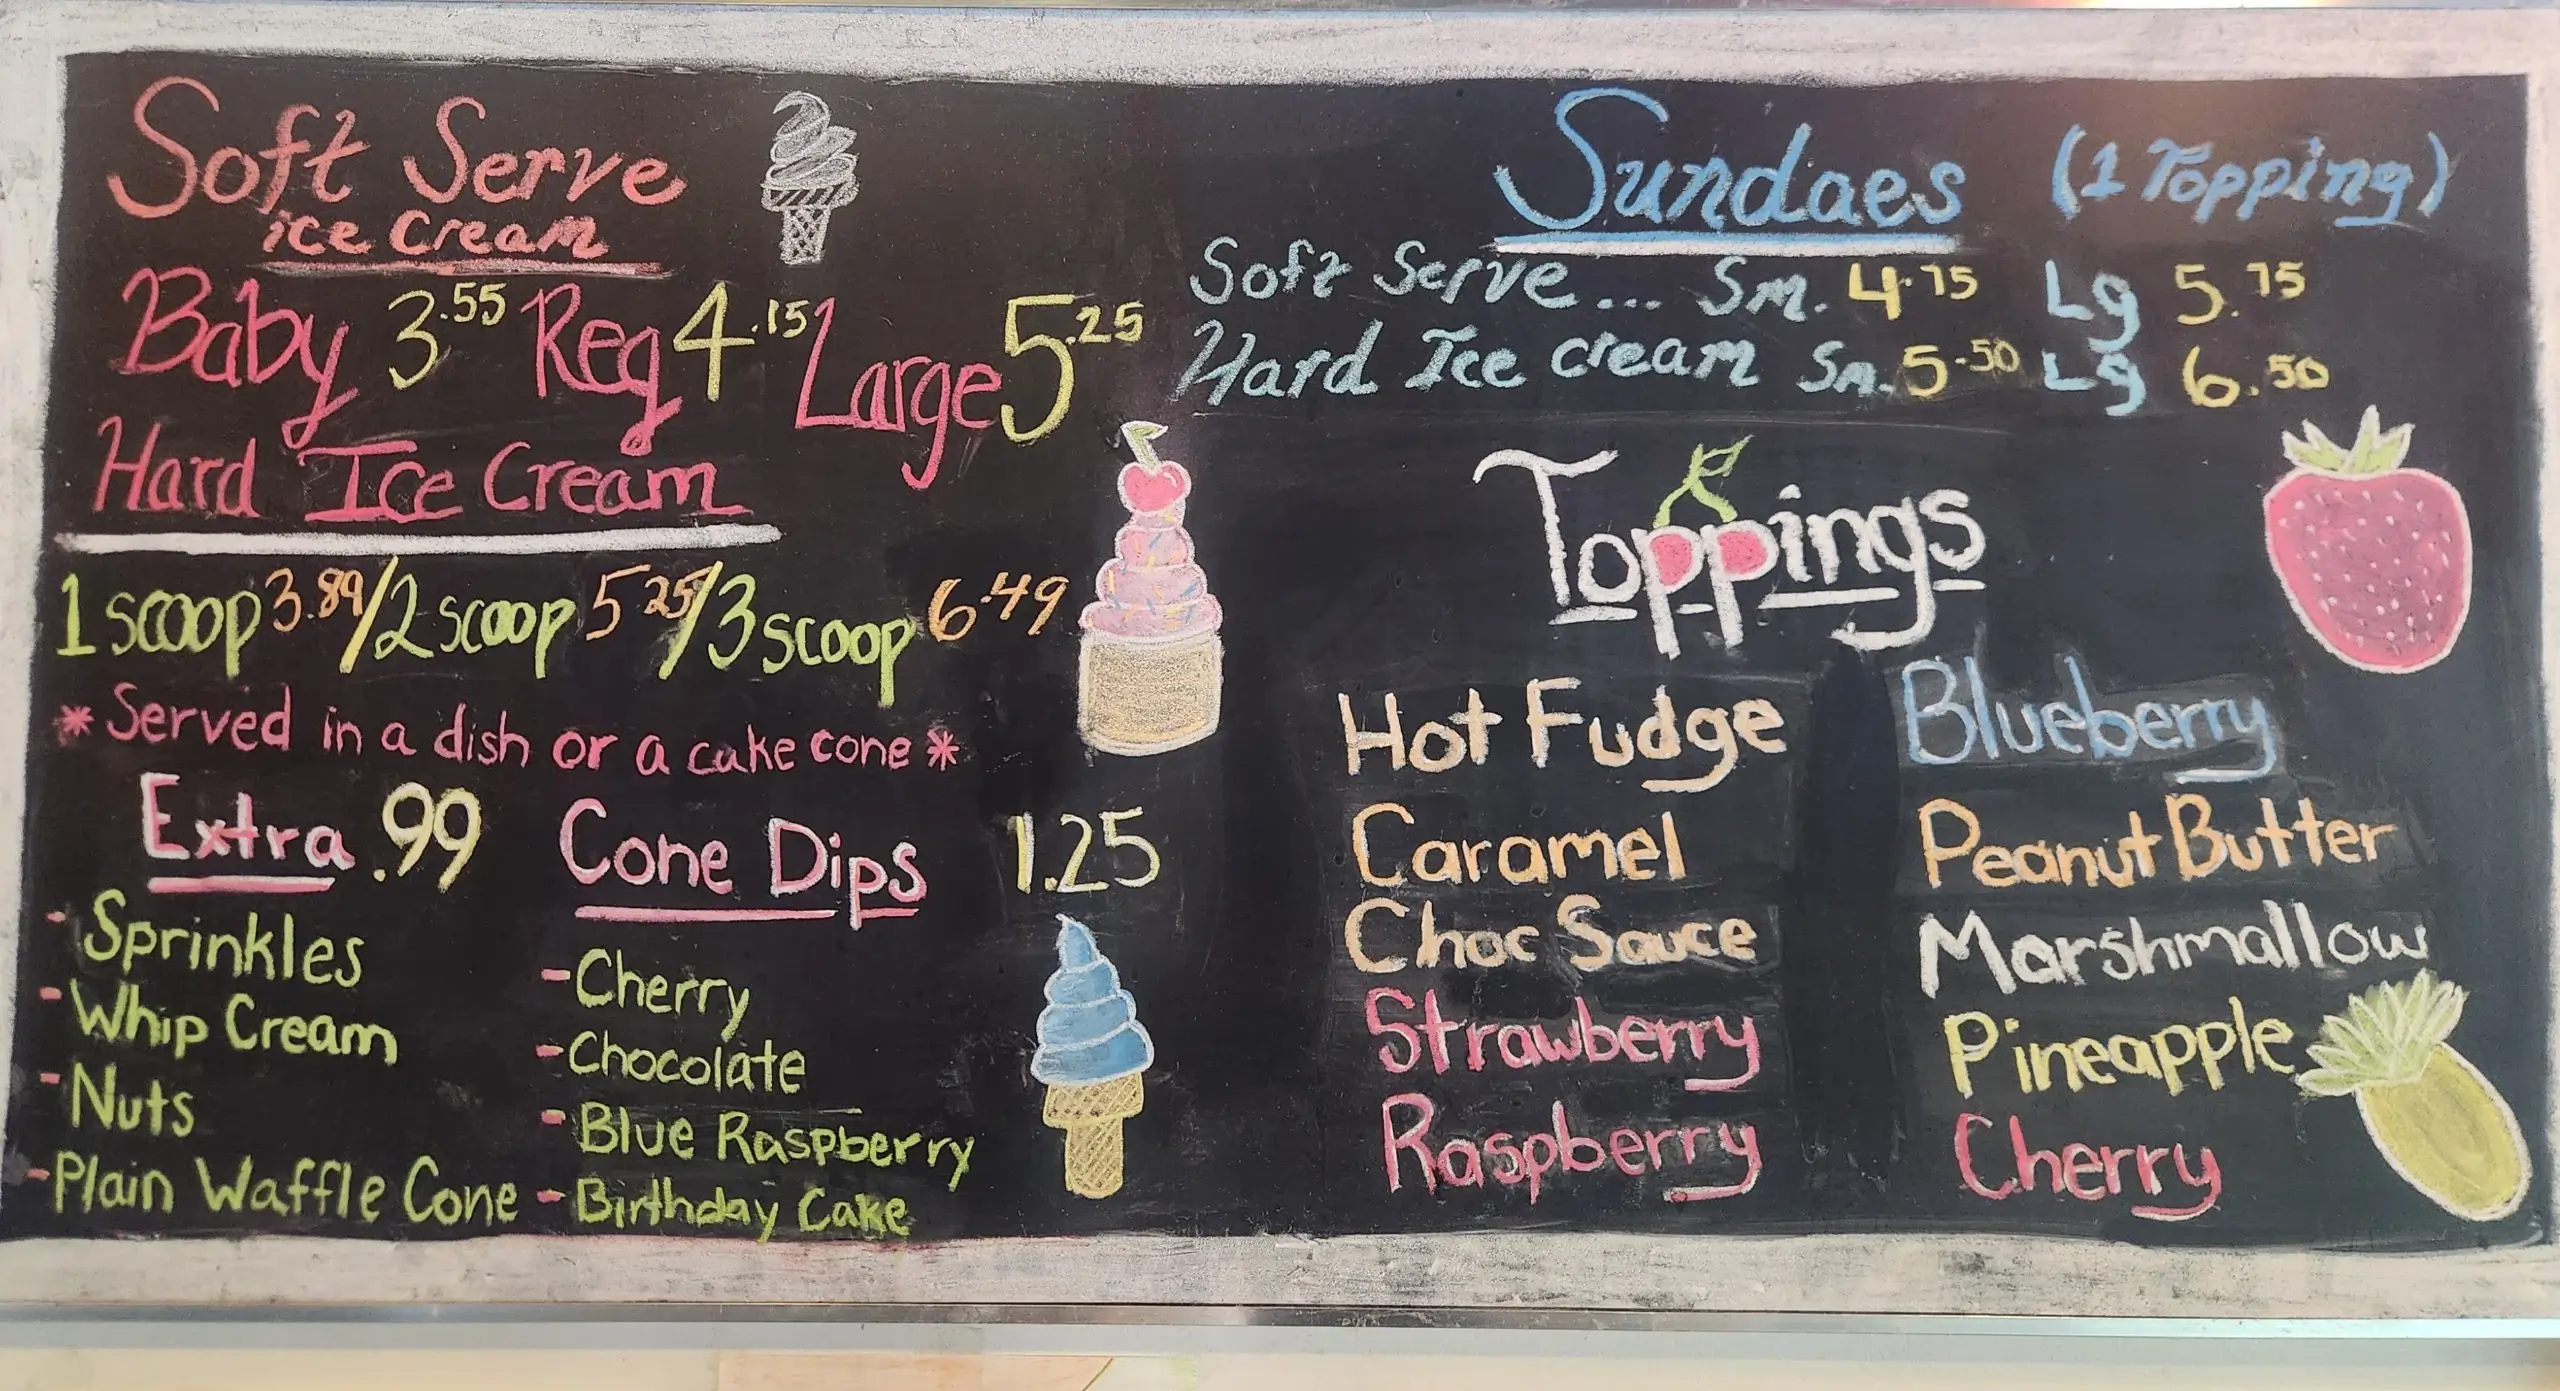 Soft Serve
ice cream
Baby 3.55 Reg 4.15 Large 5.25
Hard Ice Cream
1 scoop 3.89/2 scoop 5.25/3 scoop 6.49
*Served in a dish or a cake cone*
Extra .99
- Sprinkles
- Whip Cream
- Nuts
- Plain Waffle Cone
Cone Dips 1.25
- Cherry
- Chocolate
- Blue Raspberry
- Birthday Cake
Sundaes (1 Topping)
Soft Serve... Sm. 4.75 Lg 5.75
Hard Ice cream Sm. 5.50 Lg 6.50
Toppings
Hot Fudge
Caramel
Choc Sauce
Strawberry
Raspberry
Blueberry
Peanut Butter
Marshmallow
Pineapple
Cherry